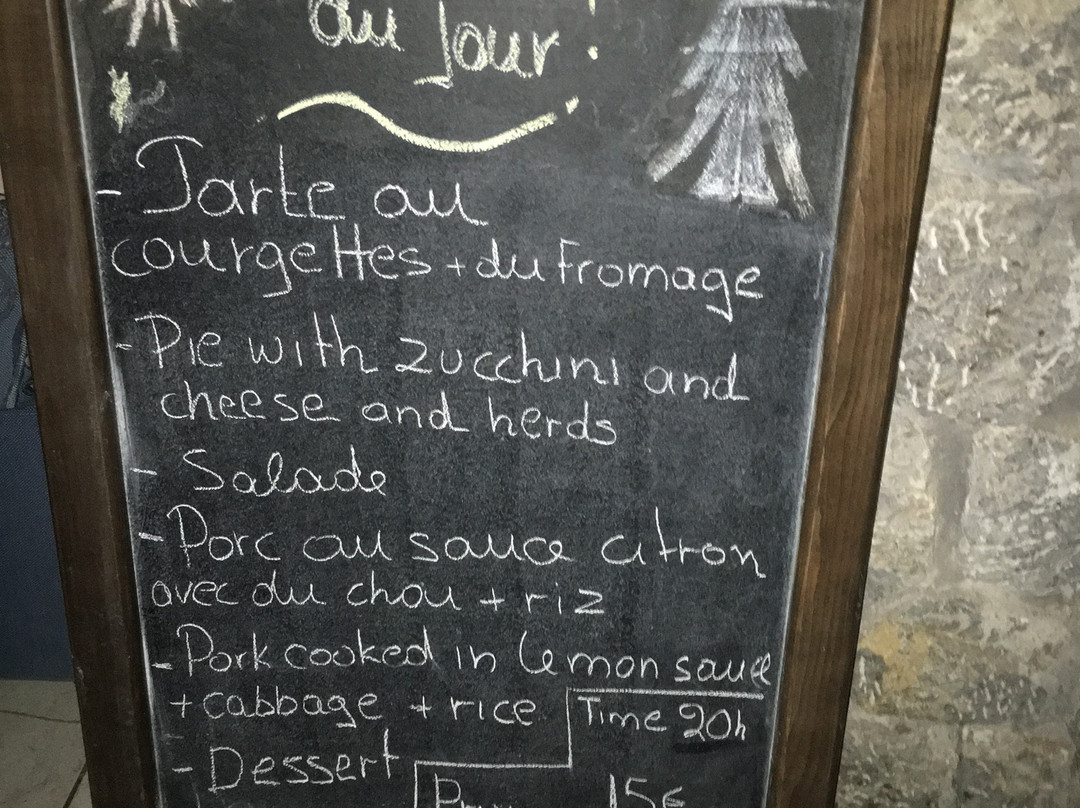 au Jour!
- Tarte au
courgettes + du fromage
- Pie with zucchini and
cheese and herds
- Salade
- Porc au sauce citron
avec du chou + riz
- Pork cooked in lemon sauce
+ cabbage + rice
Time 20h
- Dessert
15€